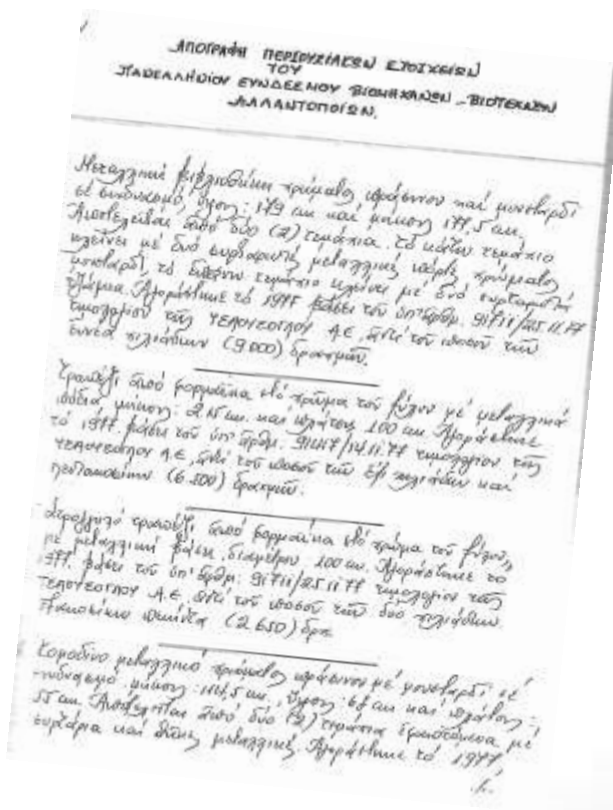 ΑΠΟΓΡΑΦΗ ΠΕΡΙΟΥΣΙΑΚΩΝ ΣΤΟΙΧΕΙΩΝ
ΤΟΥ
ΠΑΝΕΛΛΗΝΙΟΥ ΣΥΝΔΕΣΜΟΥ ΒΙΟΜΗΧΑΝΩΝ - ΒΙΟΤΕΧΝΩΝ
ΑΛΛΑΝΤΟΠΟΙΩΝ.
Μεταλλική βιβλιοθήκη χρώματος πράσινου καί μουσταρδί
σέ συνδυασμό, ὕψους: 179 cm καί μήκους 177,5 cm.
Ἀποτελεῖται ἀπό δύο (2) τεμάχια. τό κάτω τεμάχιο
κλείνει μέ δυό συρταρωτές μεταλλικές πόρτες χρώματος
μουσταρδί, τό ἐπάνω τεμάχιο κλείνει μέ δυό συρταρωτά
τζάμια. Ἀγοράστηκε τό 1977 βάσει τοῦ ὑπ' ἀριθμ. 91711/25.11.77
τιμολογίου τῆς ΤΕΛΟΥΣΟΓΛΟΥ Α.Ε, ἀντί τοῦ ποσοῦ τῶν
ἐννέα χιλιάδων (9.000) δραχμῶν.
Τραπέζι ἀπό φορμάικα στό χρῶμα τοῦ ξύλου μέ μεταλλικά
πόδια μήκους: 215 cm. καί πλάτους 100 cm Ἀγοράστηκε
τό 1977 βάσει τοῦ ὑπ' ἀριθμ. 91417/14.11.77 τιμολογίου τῆς
ΤΕΛΟΥΣΟΓΛΟΥ Α.Ε, ἀντί τοῦ ποσοῦ τῶν ἕξι χιλιάδων καί
πεντακοσίων (6.500) δραχμῶν.
Στρογγυλό τραπέζι ἀπό φορμάικα στό χρῶμα τοῦ ξύλου,
μέ μεταλλική βάση, διαμέτρου 100 cm. Ἀγοράστηκε τό
1977 βάσει τοῦ ὑπ' ἀριθμ: 91711/25.11.77 τιμολογίου τῆς
ΤΕΛΟΥΣΟΓΛΟΥ Α.Ε. ἀντί τοῦ ποσοῦ τῶν δύο χιλιάδων
ἑξακοσίων πενήντα (2.650) δρχ.
Κομοδίνο μεταλλικό χρώματος πράσινου μέ μουσταρδί σέ
συνδυασμό μήκους: cm, ὕψους: cm καί πλάτους:
55 cm. Ἀποτελεῖται ἀπό δύο (2) τεμάχια μέ
συρτάρια καί μεταλλικές. Ἀγοράστηκε τό 1977
./.